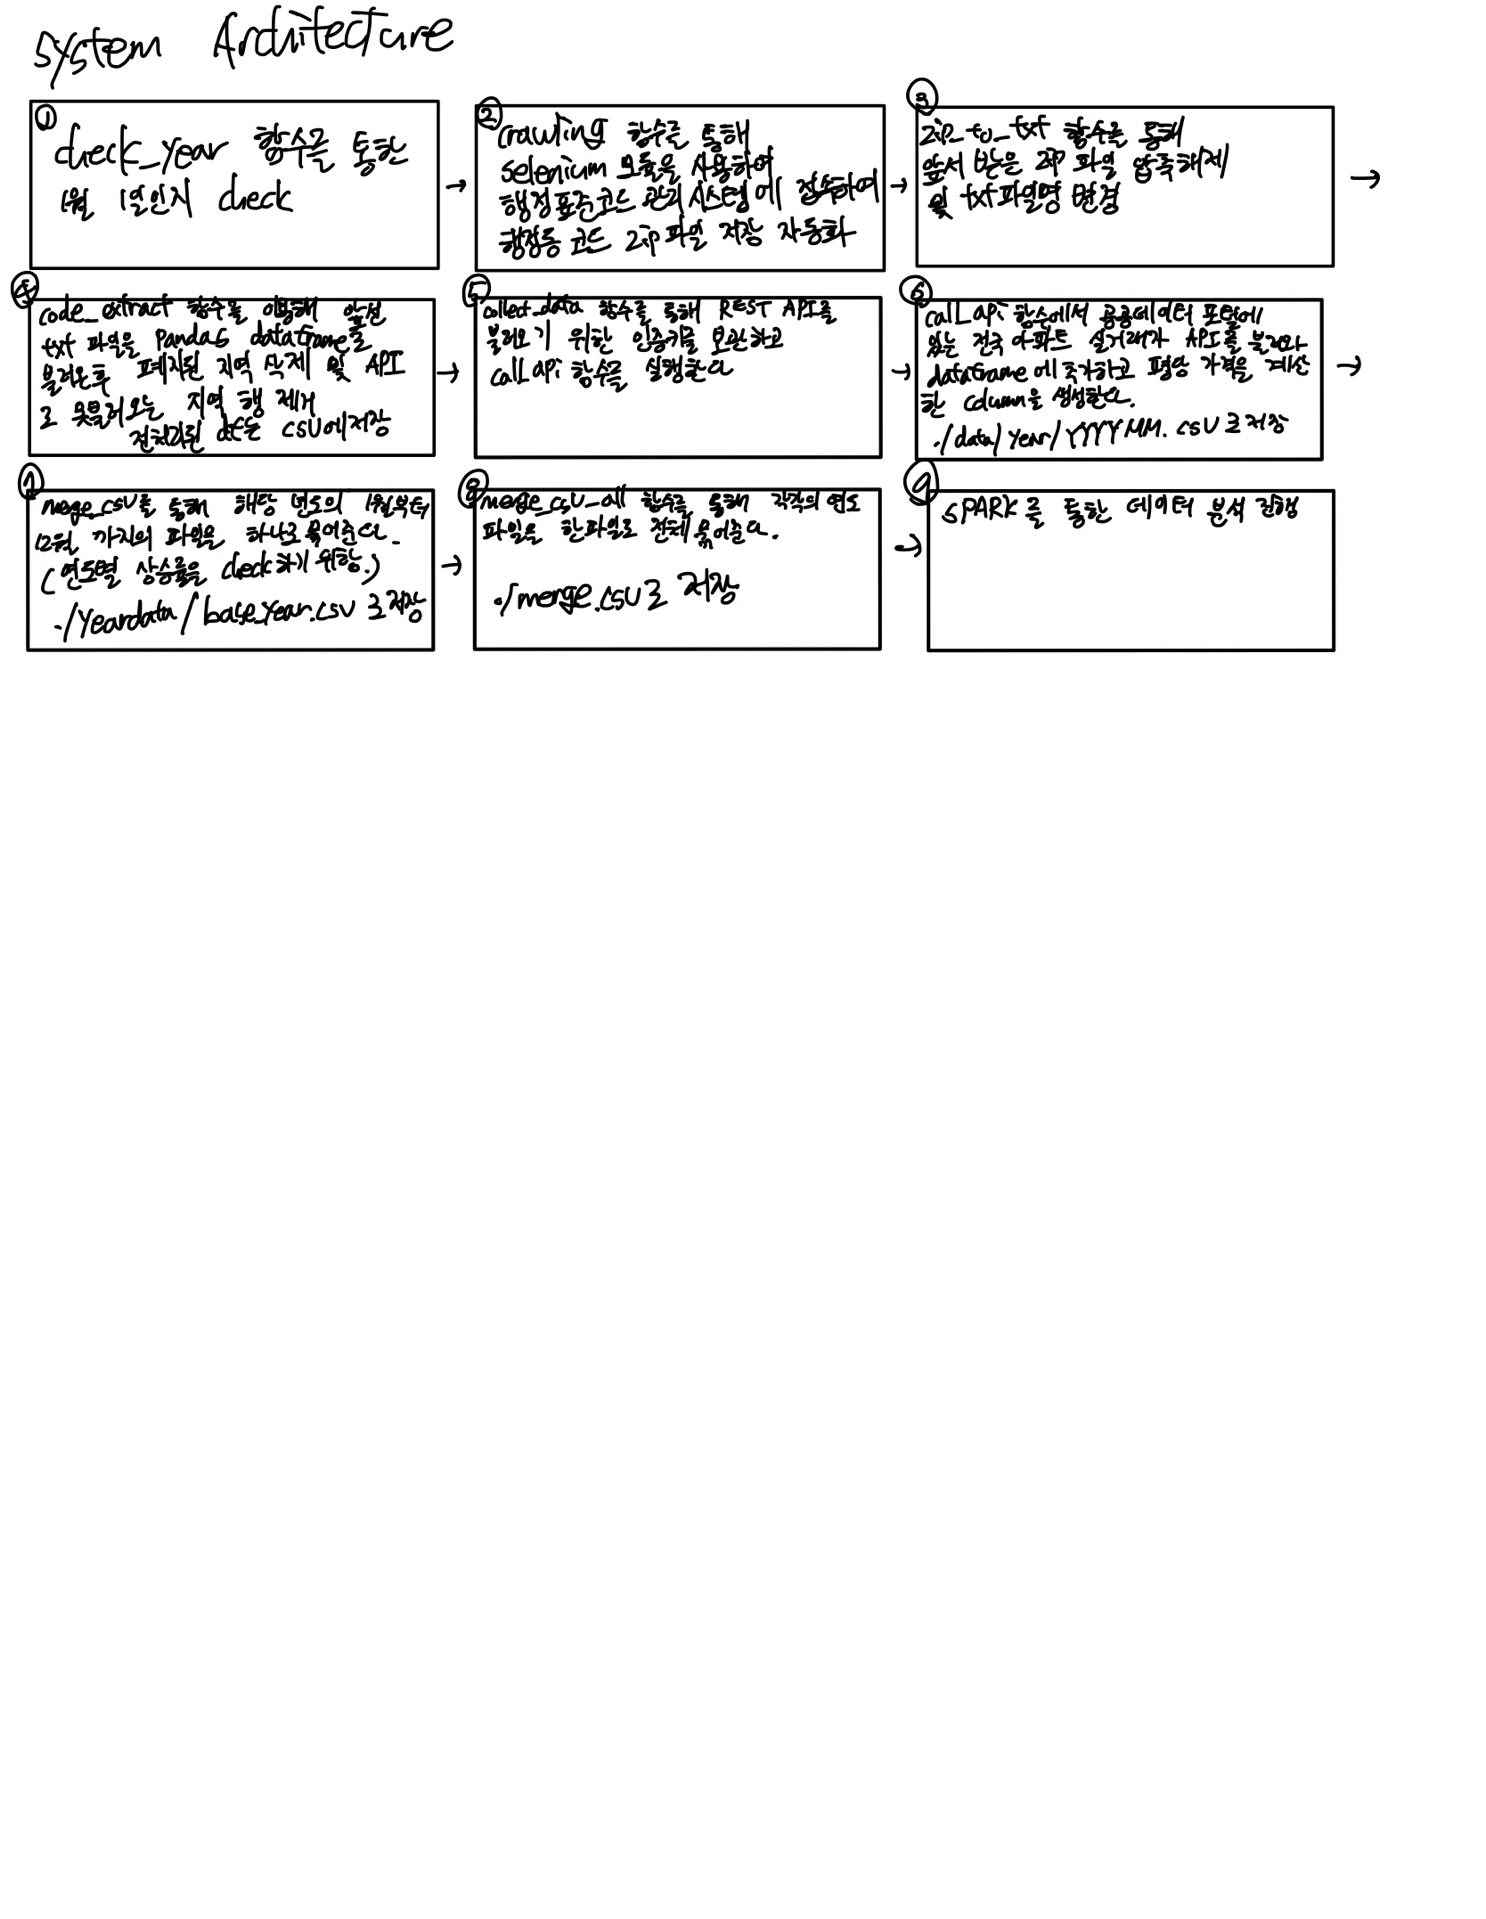 System Architecture
①
check_year 함수를 통한
1월 1일인지 check
→
②
crawling 함수를 통해
selenium 모듈을 사용하여
행정표준코드 관리시스템에 접속하여
행정동 코드 zip파일 저장 자동화
→
③
zip_to_txt 함수를 통해
앞서 받은 zip 파일 압축해제
및 txt파일명 변경
→
④
code_extract 함수를 이용해 앞선
txt 파일을 Pandas dataframe로
불러온후 폐지된 지역 삭제 및 API
로 못불러오는 지역 행 제거
전처리된 df는 csv에저장
→
⑤
collect_data 함수를 통해 REST API를
불러오기 위한 인증키를 보관하고
call_api 함수를 실행한다
→
⑥
call_api 함수에서 공공데이터 포털에
있는 전국 아파트 실거래가 API를 불러와
dataframe에 추가하고 평당 가격을 계산
한 column을 생성한다.
./data/year/YYYYMM.csv로저장
→
⑦
merge_csv를 통해 해당 년도의 1월부터
12월 까지의 파일을 하나로 묶어준다.
(연도별 상승률을 check하기 위함.)
./Yeardata/base_year.csv로저장
→
⑧
merge_csv_all 함수를 통해 각각의 연도
파일을 한파일로 전체 묶어준다.
./merge.csv로 저장
→
⑨
SPARK를 통한 데이터 분석 진행